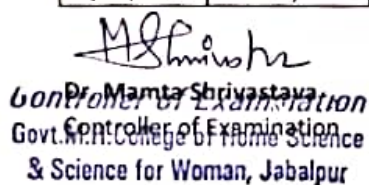 Dr. Mamta Shrivastava
Controller of Examination
Controller of Examination
Govt.M.H.College of Home Science
& Science for Woman, Jabalpur